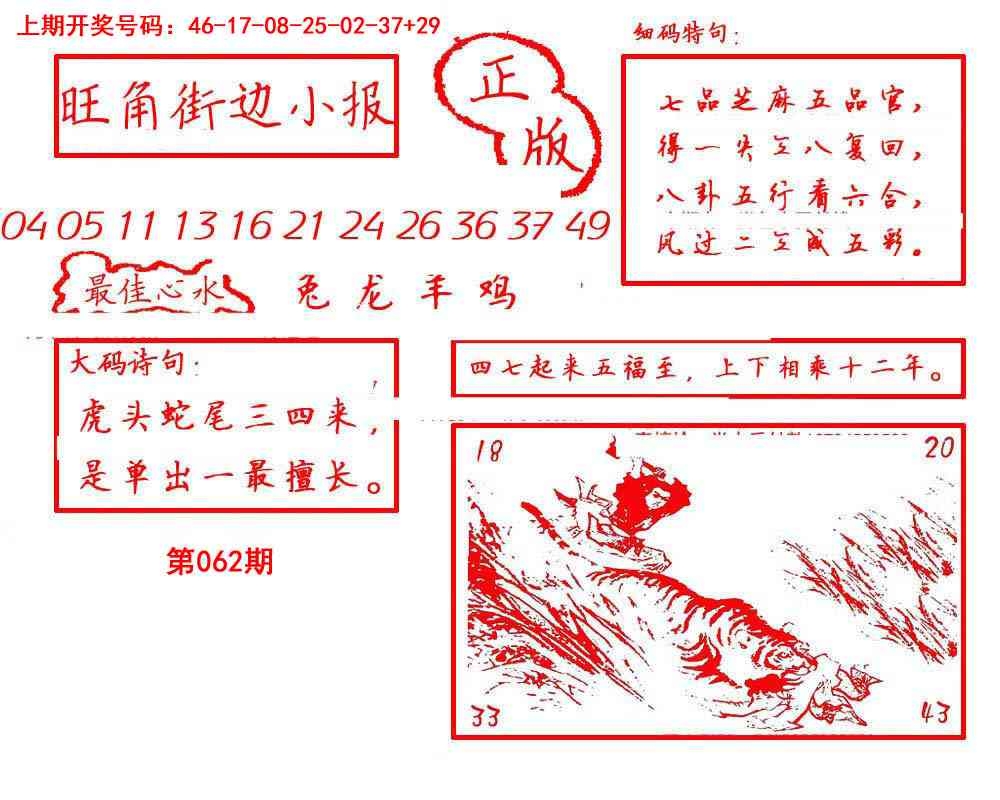 上期开奖号码：46-17-08-25-02-37+29
旺角街边小报
正版
细码特句：
七品芝麻五品官，
得一失二八复回，
八卦五行看六合，
风过二三成五彩。
04 05 11 13 16 21 24 26 36 37 49
最佳心水
兔龙羊鸡
大码诗句：
虎头蛇尾三四来，
是单出一最擅长。
四七起来五福至，上下相乘十二年。
第062期
18
20
33
43